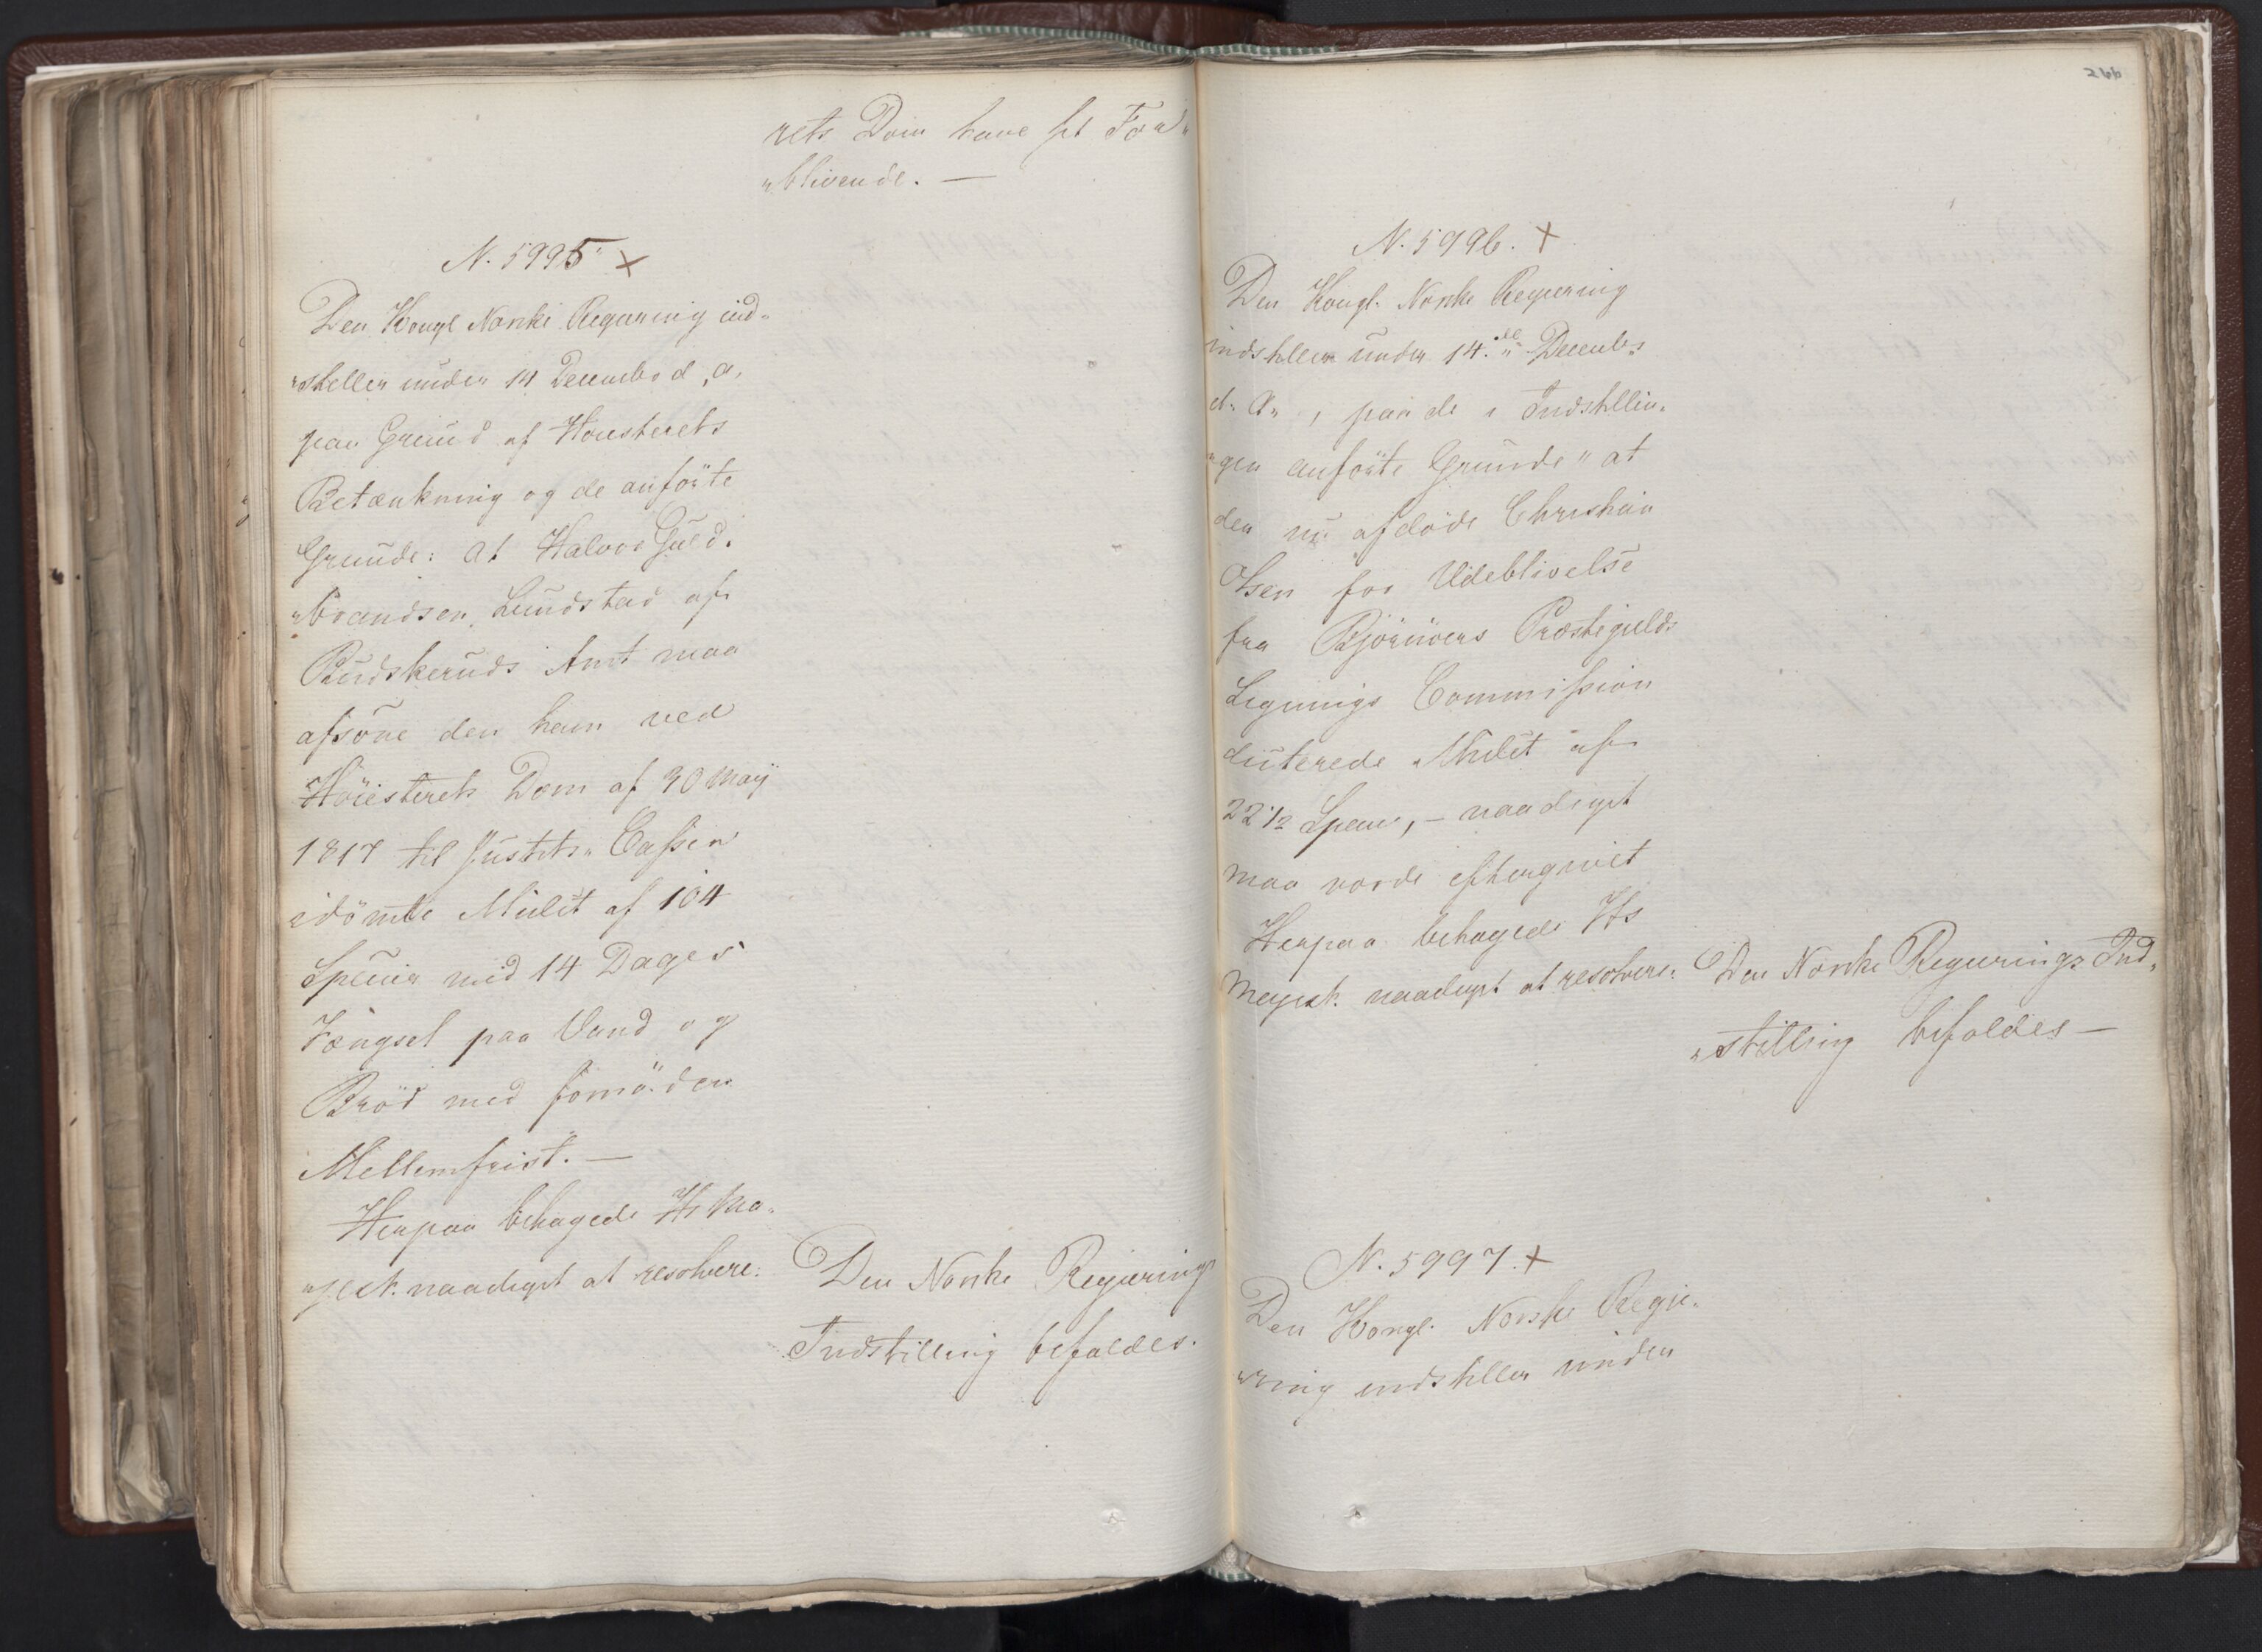 rets Dom have sit For„
„blivende. —
N. 5995 +
Den Kongl Norske Regiering ind„
„stiller under 14 December d. a.
paa Grund af Høiesterets
Betænkning og de anførte
Grunde: At Halvor Guld„
„brandsen Lundstad af
Budskeruds Amt maa
afsone den ham ved
Höiesterets Dom af 30 Maÿ
1817 til Justits„ Cassen
idömte Mulct af 104
Specier med 14 Dages
Fængsel paa Vand og
Bröd med fornöden
Mellemfrist. —
Herpaa behagede Hs Ma„
„jest. naadigst at resolvere:
Den Norske Regierings
Indstilling bifaldes.
266
N. 5996. +
Den Kongl. Norske Regiering
indstiller under 14.de Decembr
d. A. , paa de i Indstillin„
„gen anførte Grunde" at
den nu afdöde Christian
Olsen for Udeblivelse
fra Björnöers Præstegields
Lignings Commission
dicterede Mulct af
22 1/2 Specier, – naadigst
maa vorde eftergivet
Herpaa behagede Hs
Majest. naadigst at resolvere:
Den Norske Regierings Ind„
„stilling bifaldes —
N. 5997. +
Den Kongl. Norske Regie„
„ring indstiller under